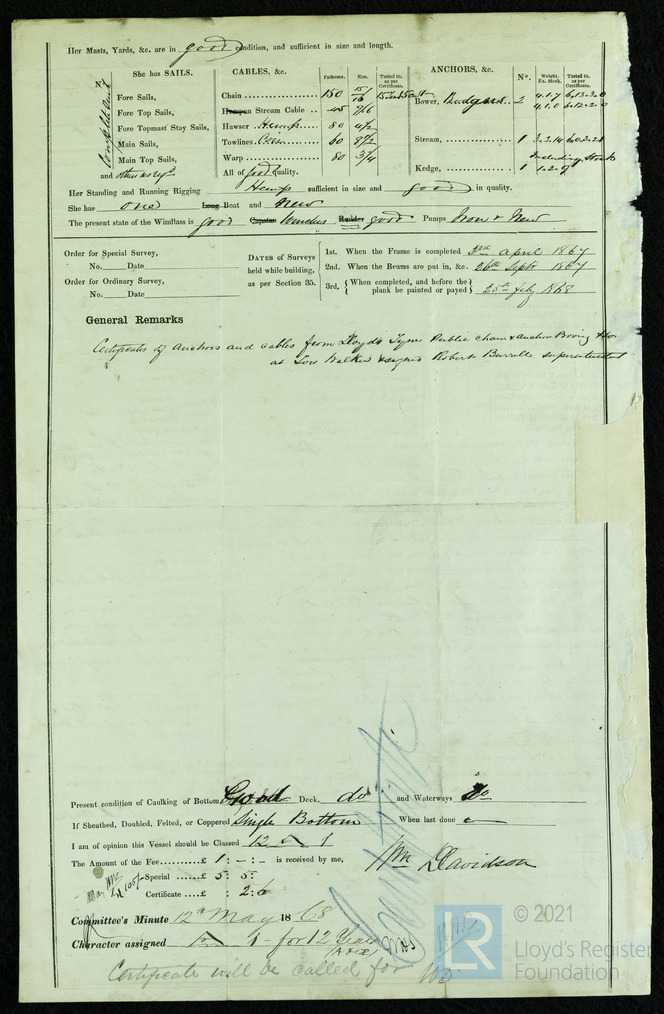 Her Masts, Yards, &c. are in good condition, and sufficient in size and length.
She has SAILS.
N.
Fore Sails,
Fore Top Sails,
Fore Topmast Stay Sails,
Main Sails,
Main Top Sails,
and others as reqd
CABLES, &c. Fathoms. Size. Tested to, as per Certificate.
Chain 150 15/16
Hempen Stream Cable 45 9/16
Hawser Hemp 80 4 1/2
Towlines 60 8 1/2
Warp 80 3/4
All of good quality.
ANCHORS, &c. No. Weight. Ex. Stock. Tested to, as per Certificate.
Bower, 2 4.1.7
4.1.0 6.12.2.0
Stream, 1 3.2.14
including Stock
Kedge, 1 1.2.9
Her Standing and Running Rigging Hemp sufficient in size and good in quality.
She has one Long Boat and New
The present state of the Windlass is good Capstan Winches Rudder good Pumps Iron & New
Order for Special Survey,
No. Date
Order for Ordinary Survey,
No. Date
DATES of Surveys held while building, as per Section 35.
1st. When the Frame is completed 3rd April 1867
2nd. When the Beams are put in, &c. 26th Septr 1867
3rd. When completed, and before the plank be painted or payed 25th Feby 1868
General Remarks
Certificates of Anchors and Cables from Lloyds Tyne Public Chain & Anchor
at Low Walker signed Robert Superintendent
Present condition of Caulking of Bottom Good Deck, do and Waterways Do
If Sheathed, Doubled, Felted, or Coppered Single Bottom When last done
I am of opinion this Vessel should be Classed 12 A 1
The Amount of the Fee £ 1 : - : - is received by me,
Wm Davidson
Special £ 5 : 5 :
Certificate : 2 : 6
Committee's Minute 12th May 1868
Character assigned A 1 - for 12 Years
Certificate will be called for
© 2021
LR
Lloyd's Register
Foundation